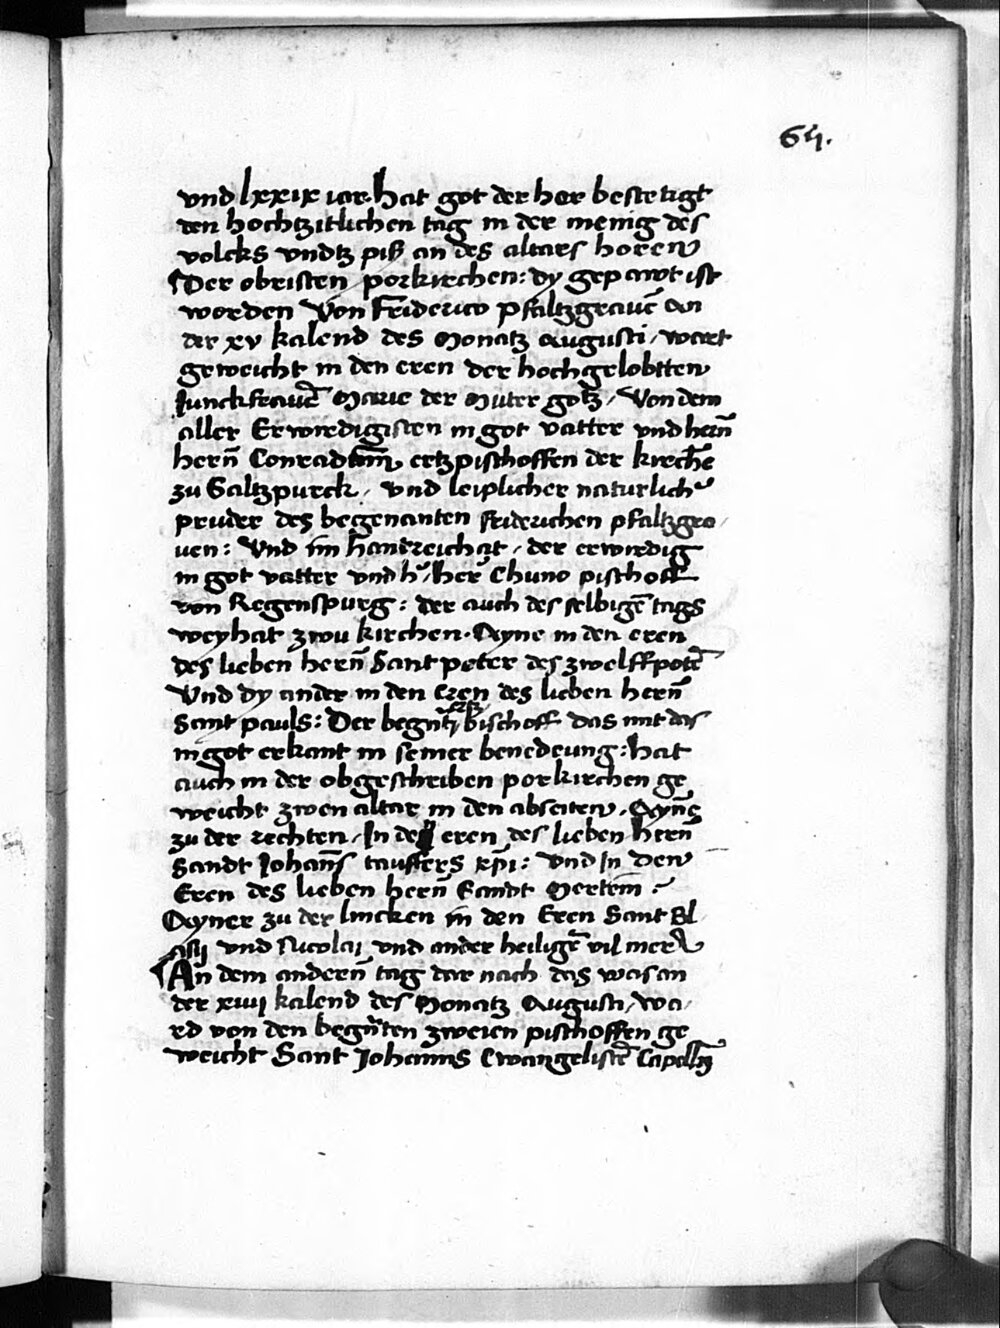 64.
vnd lxxix iar. Hat got der her bestetigt
den hochtzitlichen tag in der menig des
volcks vndtz piß an des altars horen
Der obristen porkirchen: dy gepawt ist
worden Von Friderico Pfaltzgrauē An
der xv kalend des Monatz Augusti, wart
geweicht in den eren der hochgelobtten
Junckfrauē Marie der Muter gotz, Von dem
aller Erwirdigisten in got vatter vnd hern̄
hern̄ Conradum ertzpischoffen der kirchē
zu Saltzpurck, vnd leiplicher naturlich
pruder des begenanten friderichen pfaltzgra,
uen: Vnd im hantreichat, der erwirdig
in got vatter vnd h, her Chuno pischoff
von Regenspurg: der auch des selbigē tags
weyhat zwu kirchen. Ayne in den eren
des lieben hern̄ Sant peter des zwelffpotē
Vnd dy ander in den Eren des lieben hern̄
Sant pauls: Der begn̄t ertz bischoff das mit das
in got erkant in seiner benedeung: hat
auch in der obgeschriben porkirchen ge
weicht zwen altar in den abseiten, Ayn̄s
zu der rechten, In den eren des lieben hern̄
Sandt Johan̄s taufters xp̄i: Vnd In den
Eren des lieben hern̄ Sandt Mertein:
Ayner zu der lincken in den Eren Sant Bl
asij vnd Nicolaj vnd ander heiligē vil mer
An dem andern̄ tag dar nach das was an
der xiiij kalend des Monatz Augusti, wa,
rd von den begn̄ten zweien pischoffen ge
weicht Sant Johanns Ewangelistē Capelln